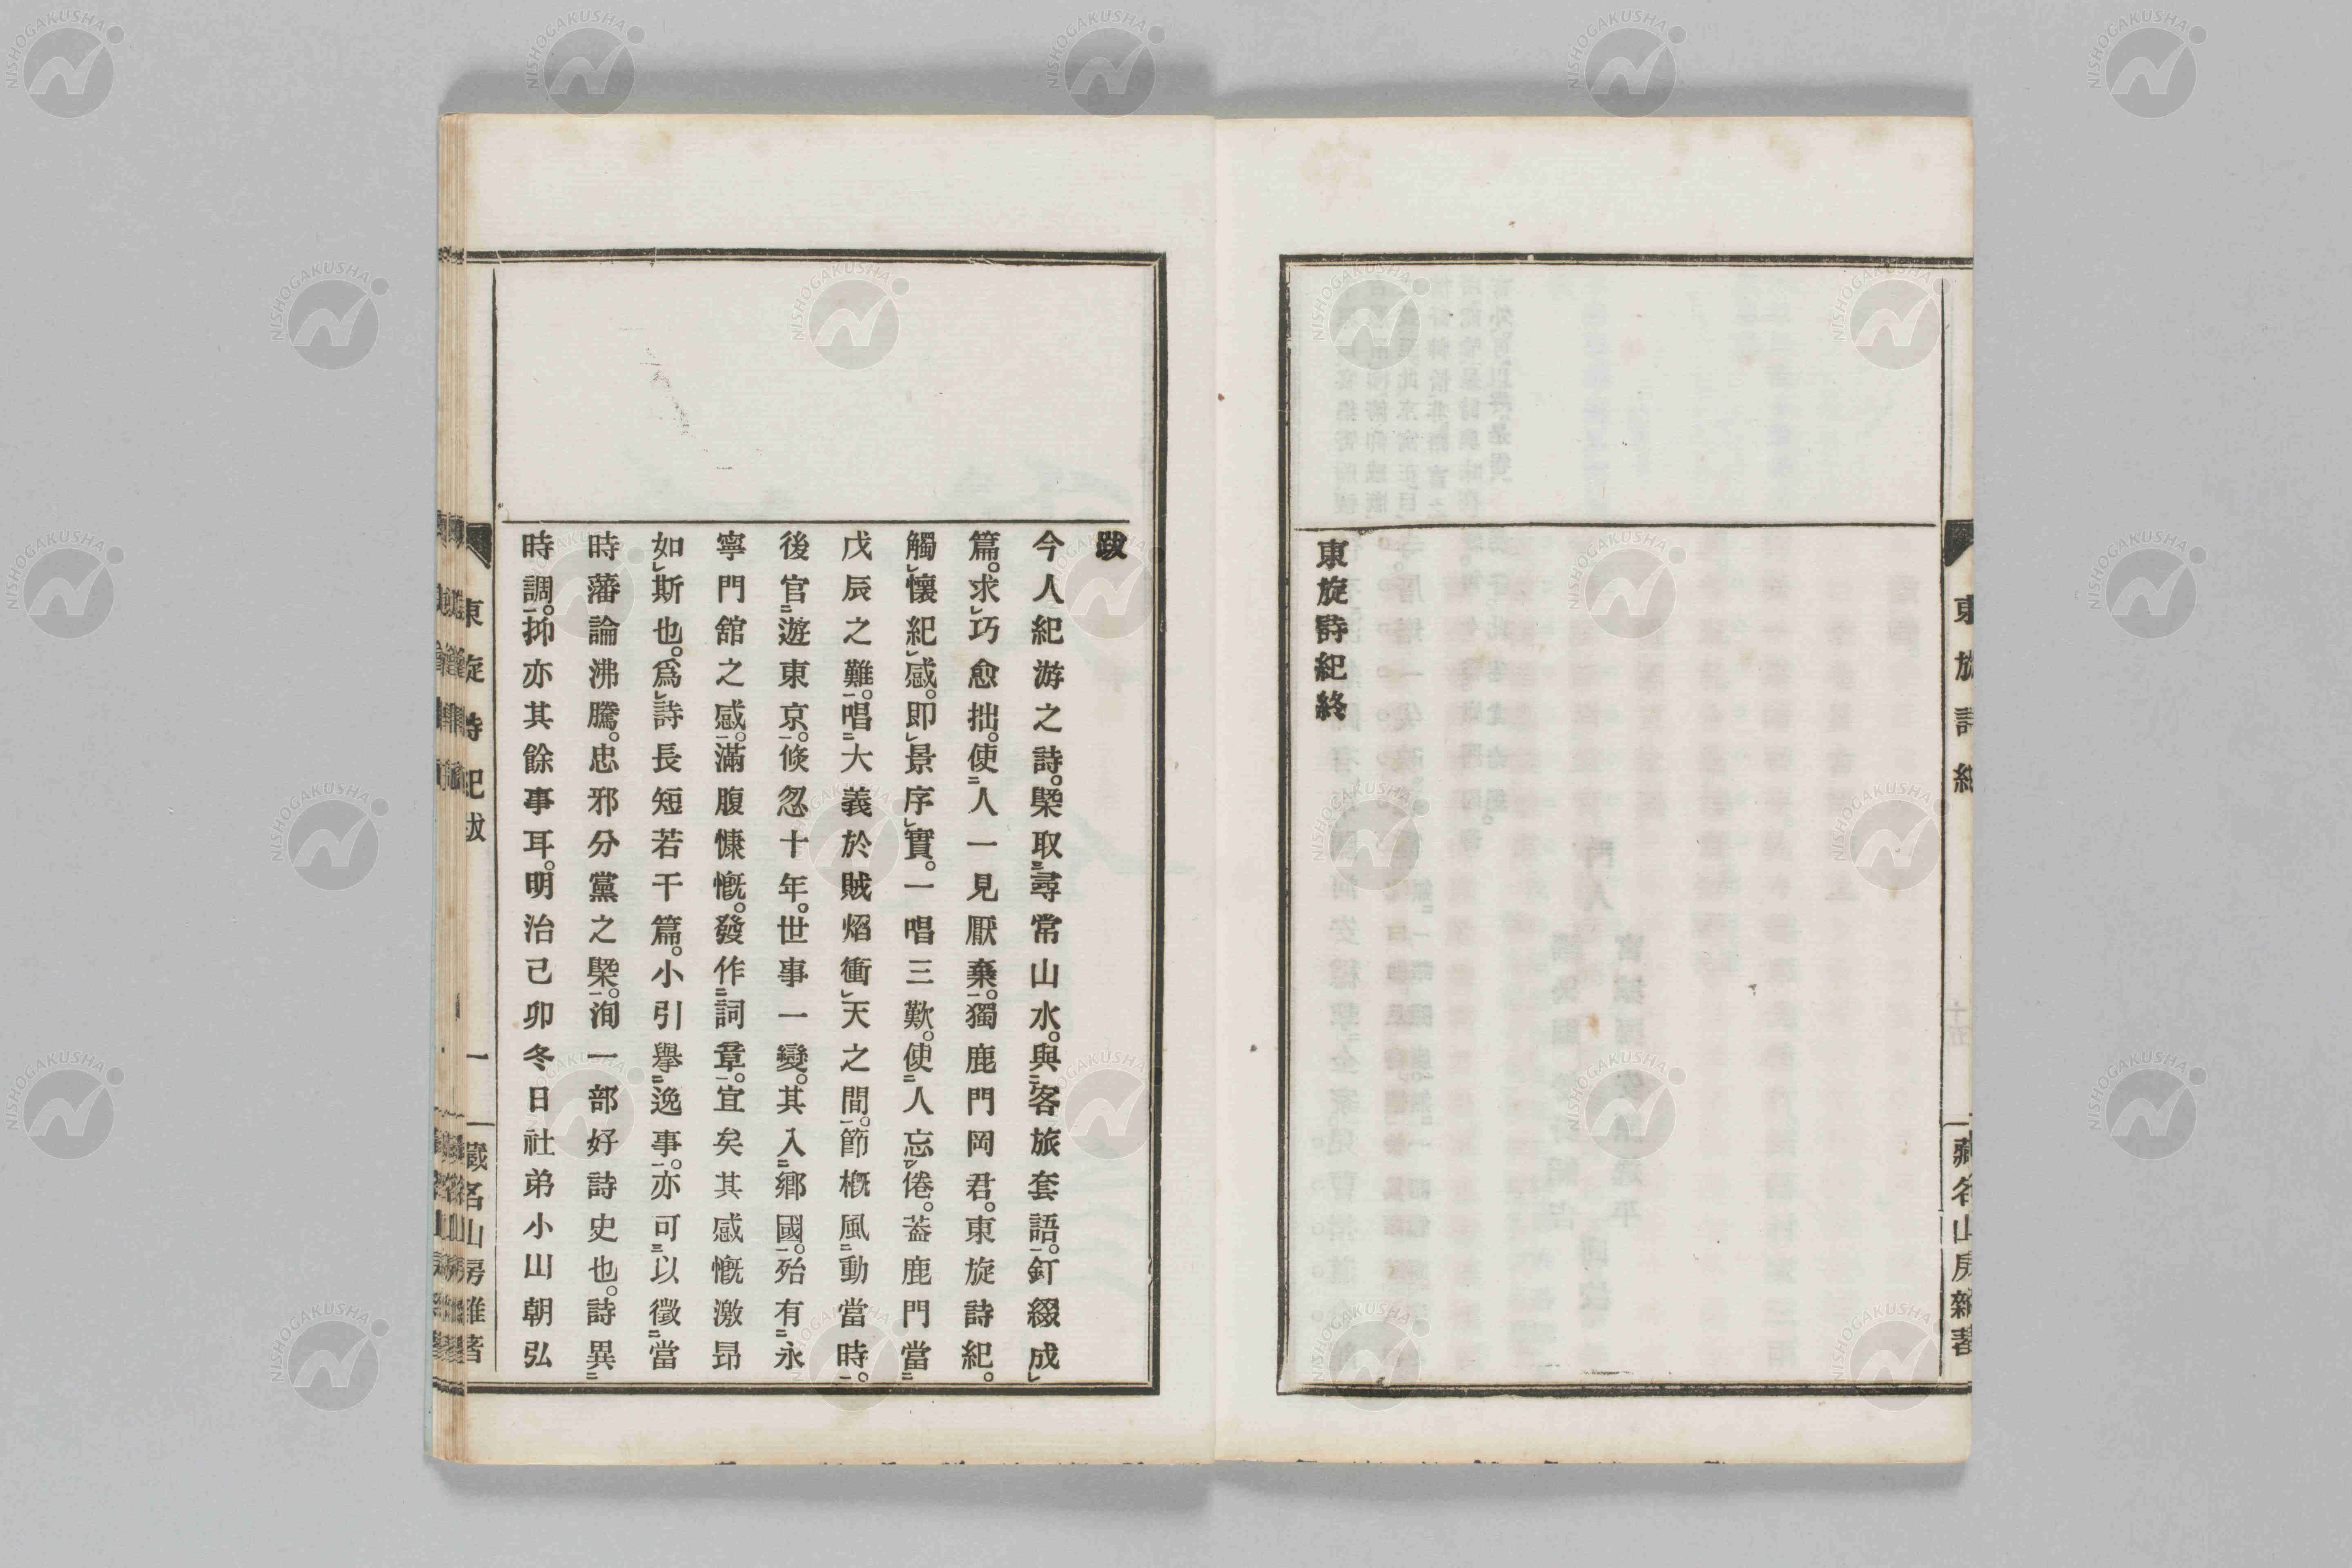 東旋詩紀
藏名山房雜著
東旋詩紀終
跋
今人紀游之詩。槩取尋常山水。與客旅套語。釘綴成
篇。求巧愈拙。使人一見厭棄。獨鹿門岡君。東旋詩紀。
觸懷紀感。即景序實。一唱三歎。使人忘倦。葢鹿門當
戊辰之難。唱大義於賊焰衝天之間。節概風動當時。
後官遊東京。倏忽十年。世事一變。其入鄉國。殆有永
寧門舘之感。滿腹慷慨。發作詞章。宜矣其感慨激昂
如斯也。爲詩長短若干篇。小引擧逸事。亦可以徵當
時藩論沸騰。忠邪分黨之槩。洵一部好詩史也。詩異
時調。抑亦其餘事耳。明治己卯冬日社弟小山朝弘
東旋詩紀跋
一
藏名山房雜著